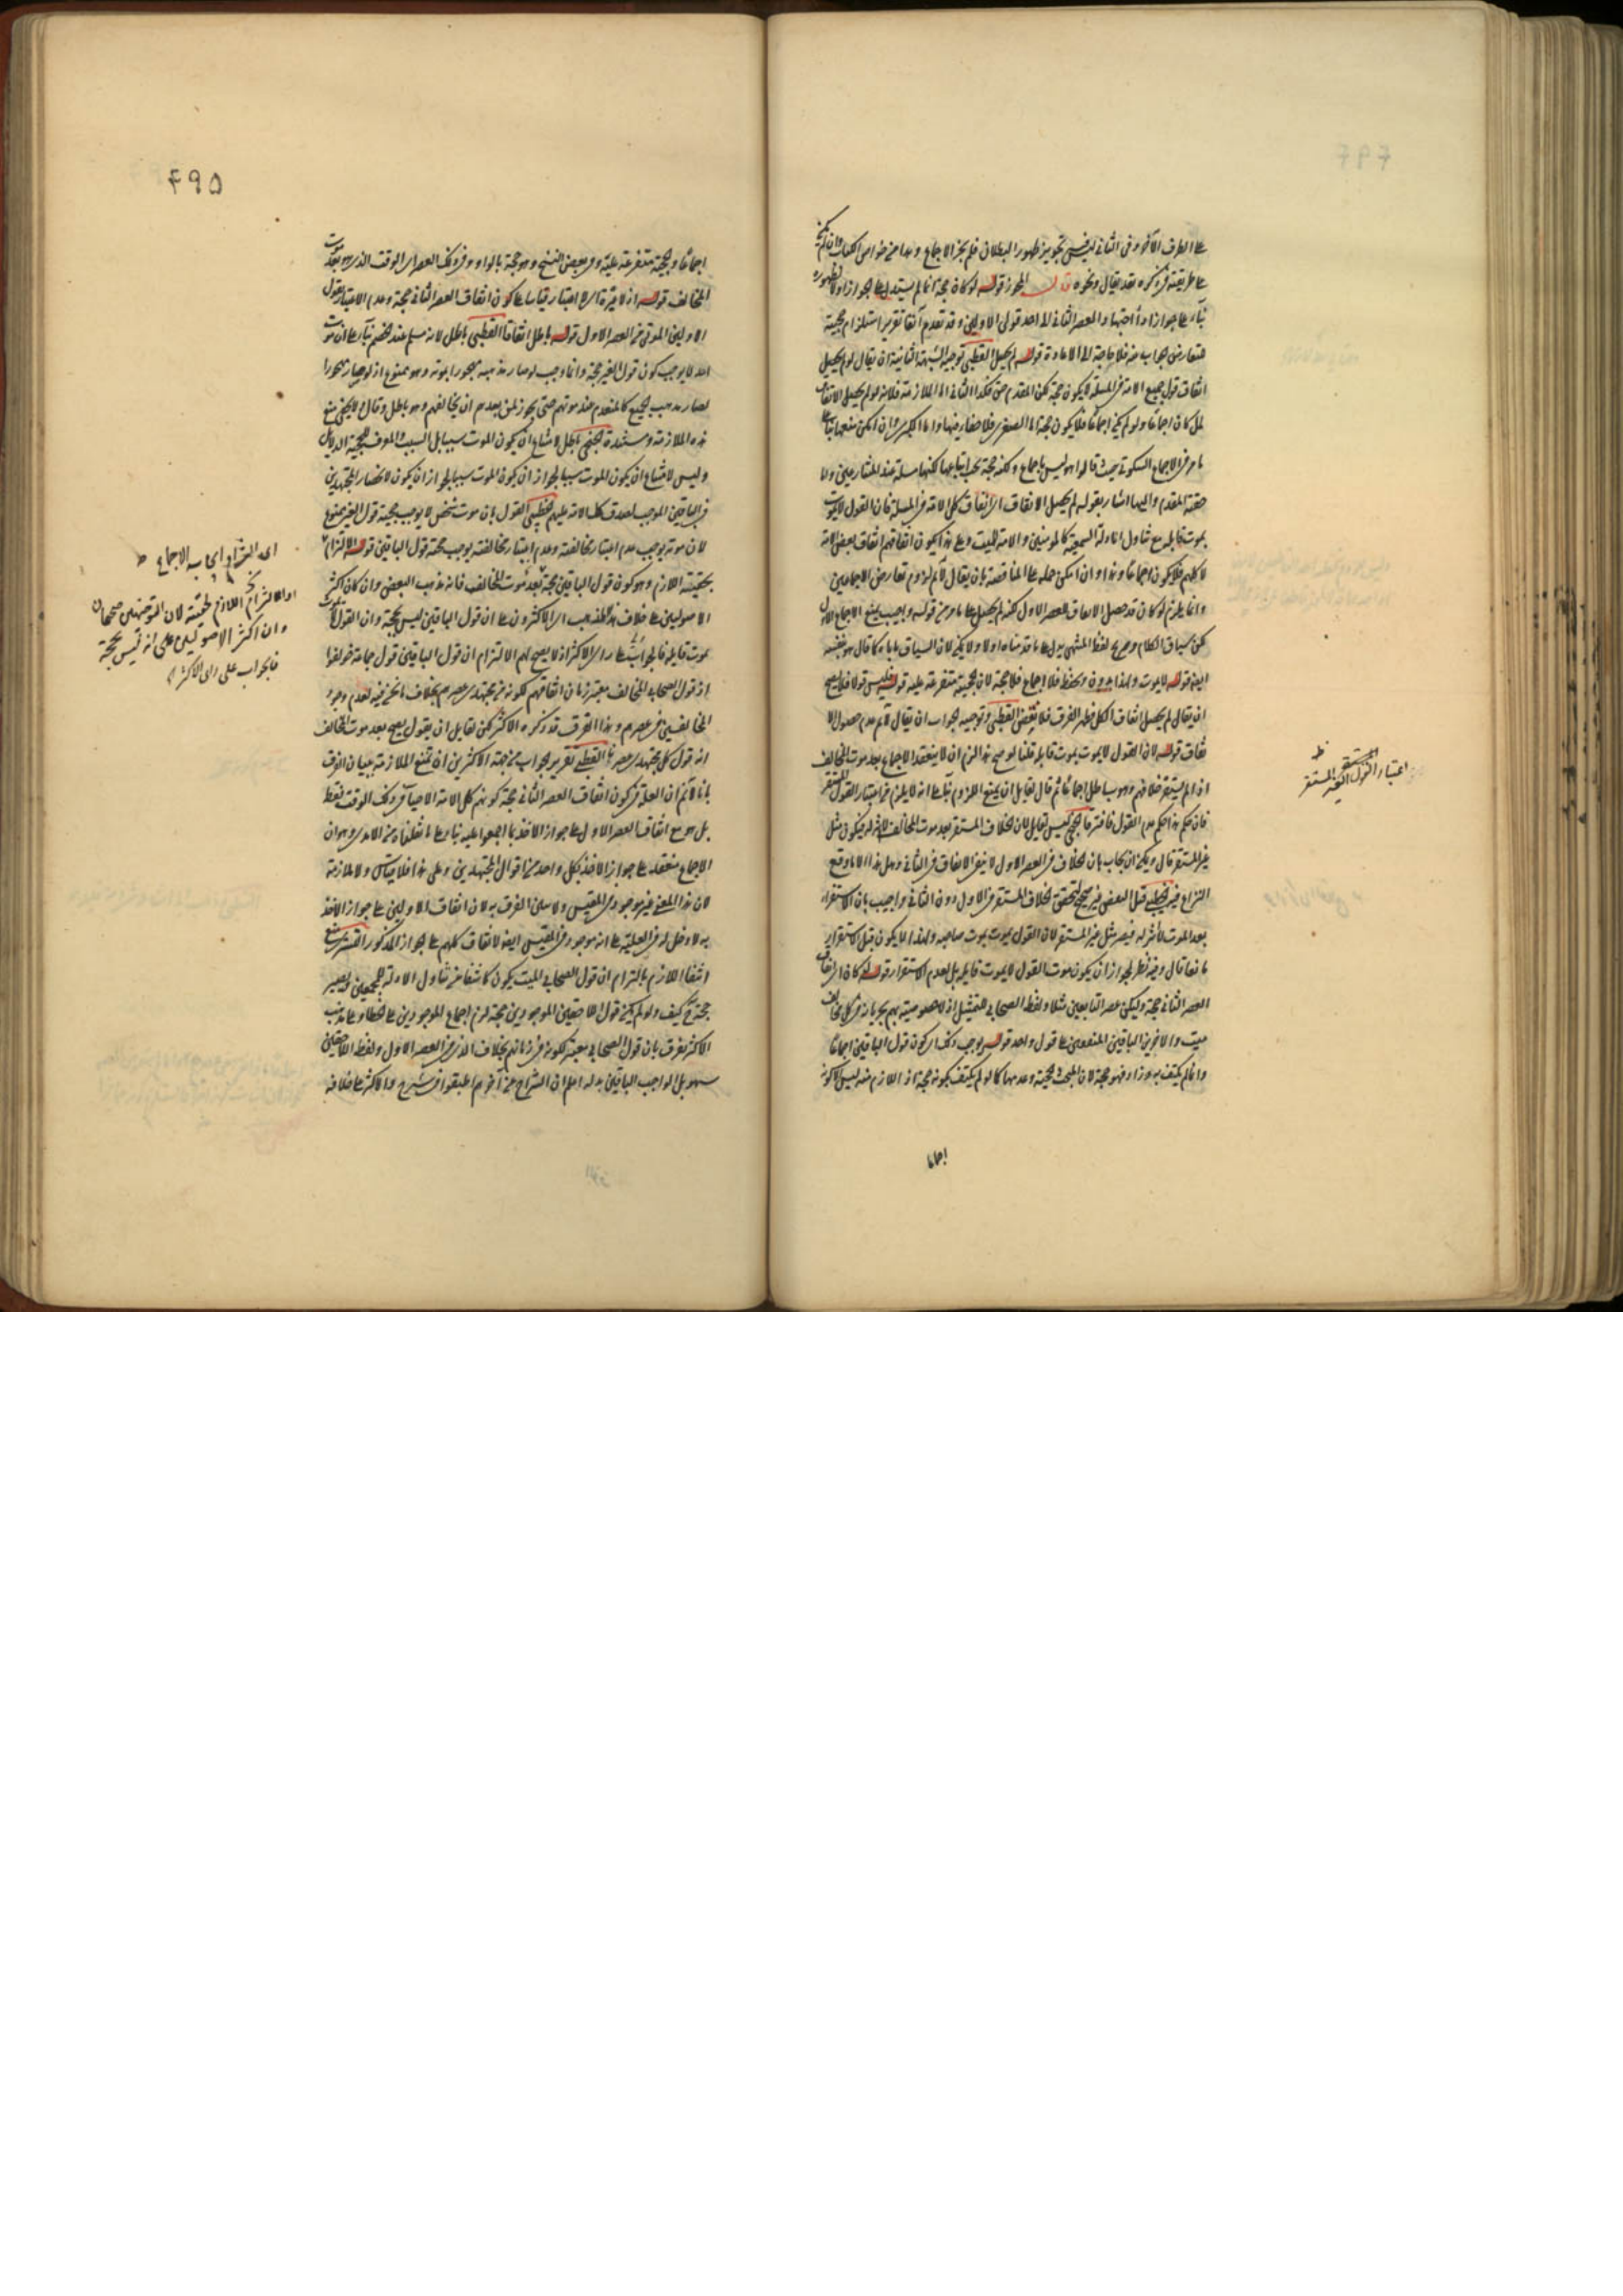 على الطرف الآخر وفي الثاني ليس تجويز ظهور البطلان فلم يجز الاجماع
على طريقة ذكره فقد يقال ونحوه قوله لو كان حجة
بناء على جواز والعصر الثاني الى احد قولي الاولين وقد تقدم آنفا تقرير استلزام حجية
التعارض بجواب منه فلا حاجة الى الاعادة قوله لم يحصل القطبي توجيه الشبهة الثانية ان يقال لو لم يحصل
اتفاق قول جميع الامة في المسئلة لا يكون حجة لكن المقدم حق فكذا التالي اما الملازمة فلانه لو لم يحصل الاتفاق
لما كان اجماعا ولو لم يكن اجماعا فلا يكون حجة اما الصغرى فلا خفاء فيها واما الكبرى وان امكن منعها
ما مر في الاجماع السكوتي حيث قالوا هو ليس باجماع ولكنه حجة يجب اتباعها لكنها مسلمة عند المتنازعين واما
حقية المقدم واليها اشار بقوله لم يحصل الاتفاق اي اتفاق كل الامة في المسئلة فان القول لا يموت
بموت قايله مع تناول الادلة السمعية كالمؤمنين والامة للميت وعلى هذا يكون اتفاقهم اتفاق بعض الامة
لا كلهم فلا يكون اجماعا وهذا وان امكن حمله على المناقضة بان يقال لا نم لزوم تعارض الاجماعين
وانما يلزم لو كان قد حصل الاتفاق للعصر الاول لكنه لم يحصل على ما مر من قوله واجيب بمنع الاجماع الاول
لكن سياق الكلام وصريح لفظ المنتهى يدل على ما قدمناه اولا ولا يمكن لان السياق ياباه كما قال هو بنفسه
ايضا قوله لا يموت ولهذا يدون ويحفظ فلا اجماع فلا حجة لان الحجية متفرعة عليه قوله فليس قولا فلا يصح
ان يقال لم يحصل اتفاق الكل فظهر الفرق فلا نقض القطبي وتوجيه الجواب ان يقال لا نم عدم حصول الا
تفاق قوله لان القول لا يموت بموت قايله قلنا لو صح هذا لزم ان لا ينعقد الاجماع بعد موت المخالف
اذا لم يستقر خلافهم وهو باطل اجماعا ثم قال لقايل ان يمنع اللزوم بناء على انه لا يلزم من اعتبار القول المستقر
فان حكم هذا حكم عدم القول فافترقا الحنجي ليس لقايل لان الخلاف المستقر بعد موت المخالف لا اثر له فيكون مثل
غير المستقر قال ويمكن ان يجاب بان الخلاف في العصر الاول لا ينفي الاتفاق في الثاني وهل هذا الا ما وقع
النزاع فيه الخطيبي قيل النقض غير صحيح لتحقق الخلاف المستقر في الاول دون الثاني واجيب بان الاستقرار
بعد الموت لا اثر له فيصير مثل غير المستقر لان القول يموت بموت صاحبه ولهذا لا يكون قبل الاستقرار
مانعا قال وفيه نظر لجواز ان يكون موت القول لا بموت قايله بل لعدم الاستقرار قوله لو كان اتفاق
العصر الثاني حجة وليكن عصر التابعين مثلا ولفظ الصحابي للتمثيل اذ لا خصوصية بهم يجري بانه في كل مخالف
ميت والآخرين الباقين المتفقين على قول واحد قوله يوجب ذلك اي كون قول الباقين اجماعا
وانما لم يكتف به وزاد فهو حجة لان البحث في حجيته وعدمها كما لو لم يكتف بكونه حجة اذ اللازم منه ليس الا كونه
اجماعا
اعتبار القول المستقر اعتبار غير المستقر
ط
۴۹۵
اجماعا والحجية متفرعة عليه وفي بعض النسخ وهو حجة بالواو وفي ذلك العصر اي الوقت الذي هو بعد موت
المخالف قوله اذ لا عبرة اي لا اعتبار قياسا على كون اتفاق العصر الثاني حجة وعدم الاعتبار بقول
الاولين الموتى من العصر الاول قوله باطل اتفاقا القطبي باطل لانه مسلم عند الخصم بناء على ان موت
احد لا يوجب كون قول الغير حجة وانما وجب لو صار مذهبه مهجورا بموته وهو ممنوع اذ لو صار مهجورا
لصار مذهب الجميع كالمنعدم عند موتهم حتى يجوز لمن بعدهم ان يخالفهم وهو باطل وقال ولا يخفى منع
هذه الملازمة وسنده الحنجي باطل لامتناع ان يكون الموت سببا بل السبب هو الموت لحجية الدلايل
وليس لامتناع ان يكون الموت سببا لجواز ان يكون الموت سببا لجواز ان يكون لانحصار المجتهدين
في الباقين الموجب لصدق كل الامة عليهم الخطيبي القول بان موت شخص لا يوجب حجية قول الغير ممنوع
لان موته يوجب عدم اعتبار مخالفته وعدم اعتبار مخالفته يوجب حجية قول الباقين قوله الالتزام
بحقية اللازم وهو كون قول الباقين حجة بعد موت المخالف فانه مذهب البعض وان كان اكثر
الاصوليين على خلاف هذا المذهب اي الاكثرون على ان قول الباقين ليس بحجة وان القول لا يموت
بموت قايله فالجواب على راي الاكثر اذ لا يصح لهم الالتزام ان قول الباقين قول جماعة خولفوا
اذ قول الصحابي المخالف معتبر زمان اتفاقهم لكونه من مجتهدي عصرهم بخلاف ما نحن فيه لعدم وجود
المخالفين في عصرهم وهذا الفرق قد ذكره الاكثر لكن لقايل ان يقول يصح بعد موت المخالف
انه قول كل مجتهدي عصره القطبي تقرير الجواب من جهة الاكثرين ان نمنع الملازمة ببيان الفرق
بانا لا نم ان العلة في كون اتفاق العصر الثاني حجة كونهم كل الامة الاحياء في ذلك الوقت فقط
بل هو مع اتفاق العصر الاول على جواز الاخذ بما اجمعوا عليه بناء على ما نقلناه من الامدي وهو ان
الاجماع منعقد على جواز الاخذ بكل واحد من اقوال المجتهدين وعلى هذا فلا قياس ولا ملازمة
لان هذا المعنى غير موجود في المقيس ولا يمكن الفرق به لان اتفاق الاولين على جواز الاخذ
به لا دخل له في العلية على انه موجود في المقيس ايضا لاتفاق كلهم على الجواز المذكور التستري منع
انتفاء اللازم بالتزام ان قول الصحابي الميت يكون كاشفا عن تناول الادلة للمجمعين ويصير
حجة كيف ولو لم يكن قول اللاحقين الموجودين حجة لزم اجماع الموجودين على الخطاء وعلى مذهب
الاكثر نفرق بان قول الصحابي معتبر لكونه في زمانهم بخلاف الذي في العصر الاول ولفظ اللاحقين
سهو بل الواجب الباقين بدله اعلم ان الشراح من آخرهم اطبقوا في شرح والاكثر على خلافه
اي التزام ايجابه الاجماع ط
او الالتزام اللازم لحقيته لان
وان اكثر الاصوليين على انه ليس بحجة
فالجواب على راي الاكثر